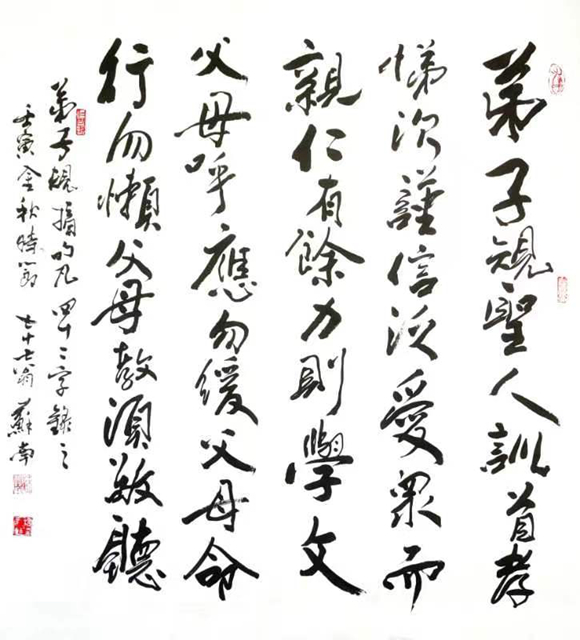 弟子規聖人訓首孝
悌次謹信泛愛眾而
親仁有餘力則學文
父母呼應勿緩父母命
行勿懶父母教須敬聽
弟子規摘句凡四十二字錄之
壬寅金秋時節七十七翁蘇南